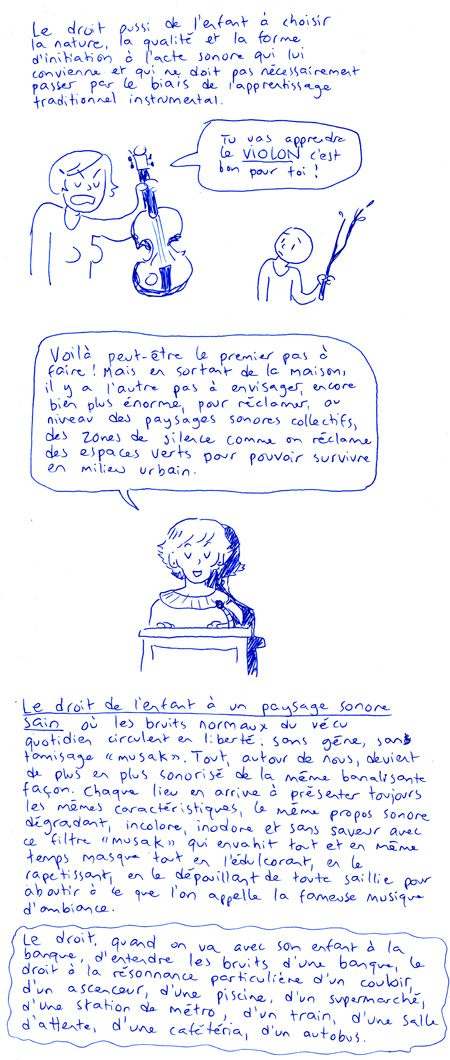 Le droit aussi de l'enfant à choisir
la nature, la qualité et la forme
d'initiation à l'acte sonore qui lui
convienne et qui ne doit pas nécessairement
passer par le biais de l'apprentissage
traditionnel instrumental.
Tu vas apprendre
le VIOLON c'est
bon pour toi !
Voilà peut-être le premier pas à
faire ! Mais en sortant de la maison,
il y a l'autre pas à envisager, encore
bien plus énorme, pour réclamer, au
niveau des paysages sonores collectifs,
des zones de silence comme on réclame
des espaces verts pour pouvoir survivre
en milieu urbain.
Le droit de l'enfant à un paysage sonore
sain où les bruits normaux du vécu
quotidien circulent en liberté, sans gêne, sans
tamisage « musak ». Tout, autour de nous, devient
de plus en plus sonorisé de la même banalisante
façon. Chaque lieu en arrive à présenter toujours
les mêmes caractéristiques, le même propos sonore
dégradant, incolore, inodore et sans saveur avec
ce filtre « musak » qui envahit tout et en même
temps masque tout en l'édulcorant, en le
rapetissant, en le dépouillant de toute saillie pour
aboutir à ce que l'on appelle la fameuse musique
d'ambiance.
Le droit, quand on va avec son enfant à la
banque, d'entendre les bruits d'une banque, le
droit à la résonnance particulière d'un couloir,
d'un ascenceur, d'une piscine, d'un supermarché,
d'une station de métro, d'un train, d'une salle
d'attente, d'une cafétéria, d'un autobus.